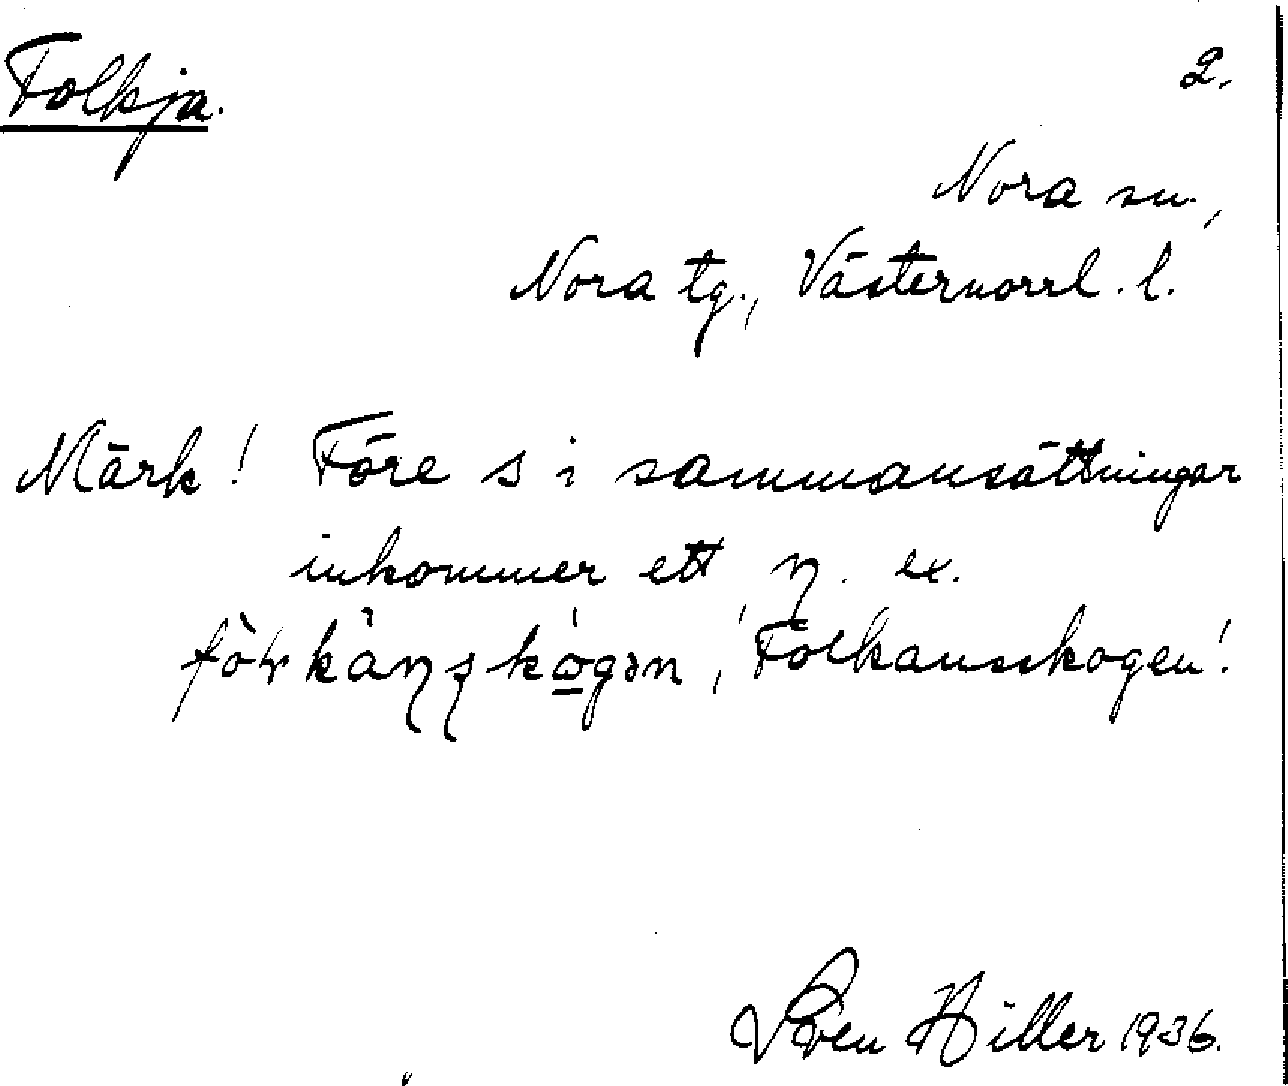 Folkja.
2.
Nora sn.,
Nora tg., Västernorrl. l.
Märk! Före s i sammansättningar
inkommer ett ɳ. ex.
, 'Folkansskogen'.
Sven Hiller 1936.